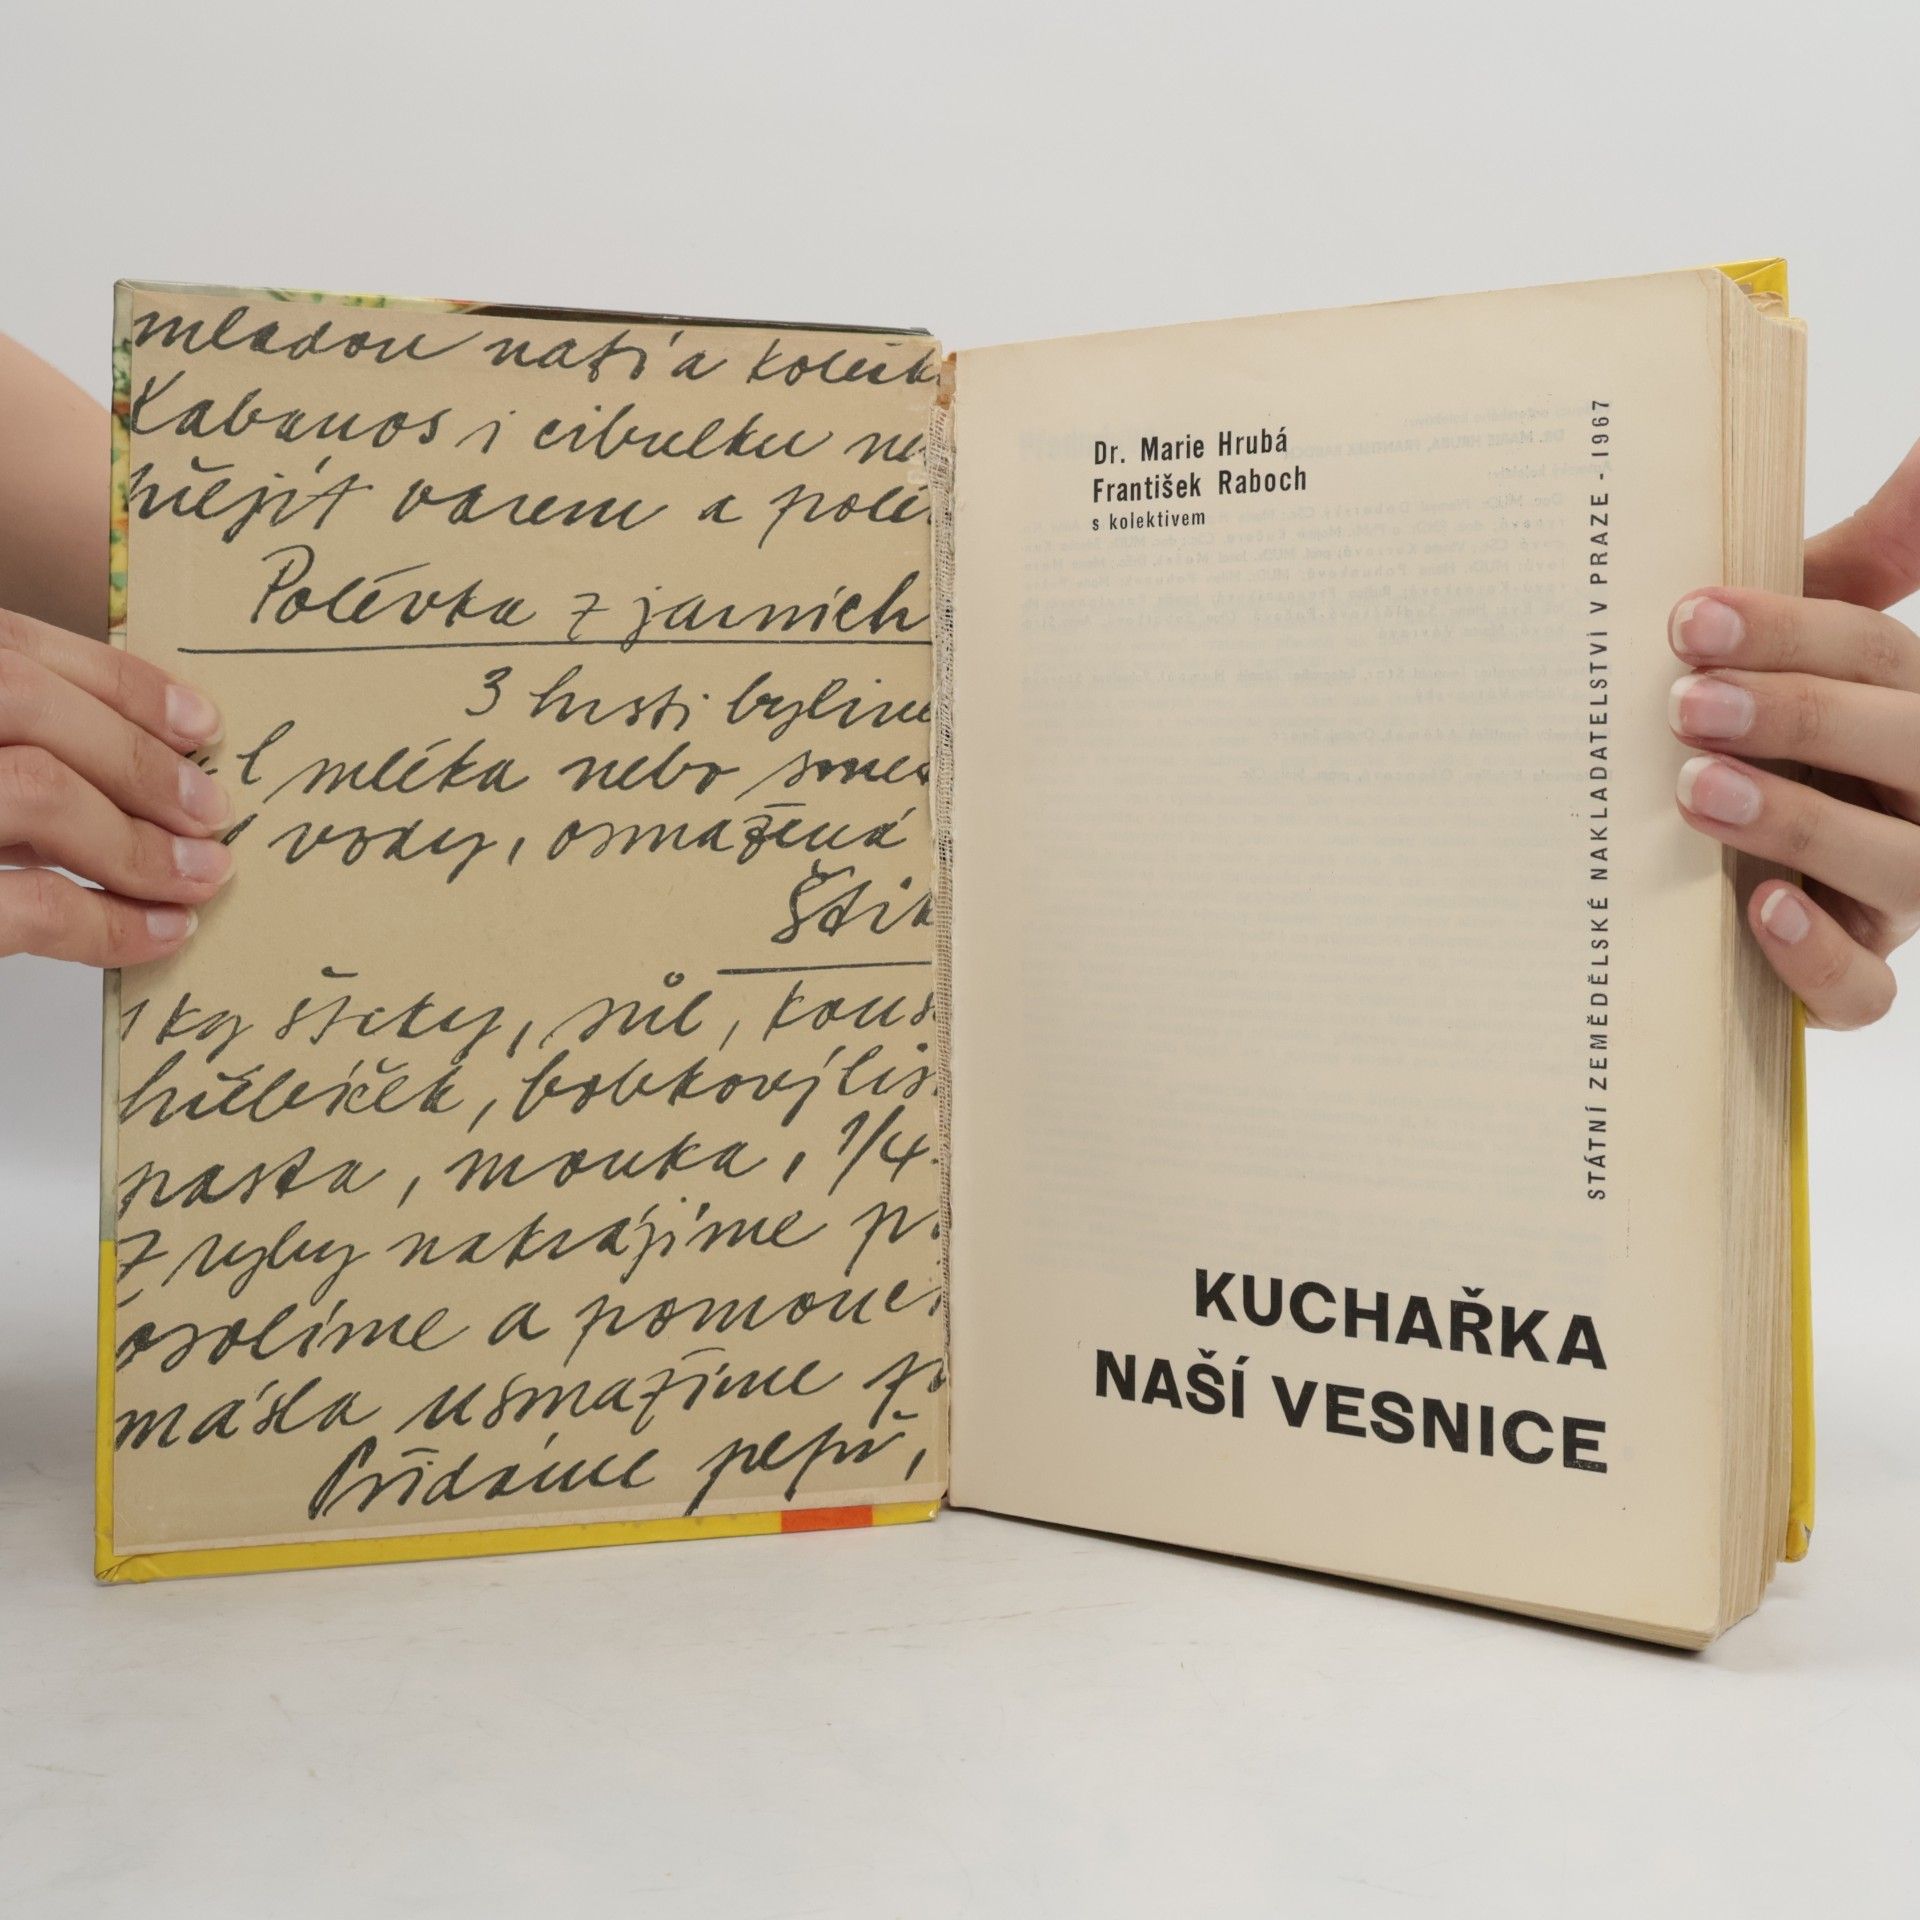 mladou natí a kolečk
Kabanos i cibulku ne
přejít varem a polé
Polévka z jarních
3 hrsti bylin
l mléka nebo smet
vody, osmažená
Štik
1 kg štiky, sůl, kous
hřebíček, bobkový lis
pasta, mouka, 1/4
z ryby nakrájíme p
osolíme a pomouč
másla usmažíme
Přidáme pepř,
Dr. Marie Hrubá
František Raboch
s kolektivem
STÁTNÍ ZEMĚDĚLSKÉ NAKLADATELSTVÍ V PRAZE - 1967
KUCHAŘKA
NAŠÍ VESNICE